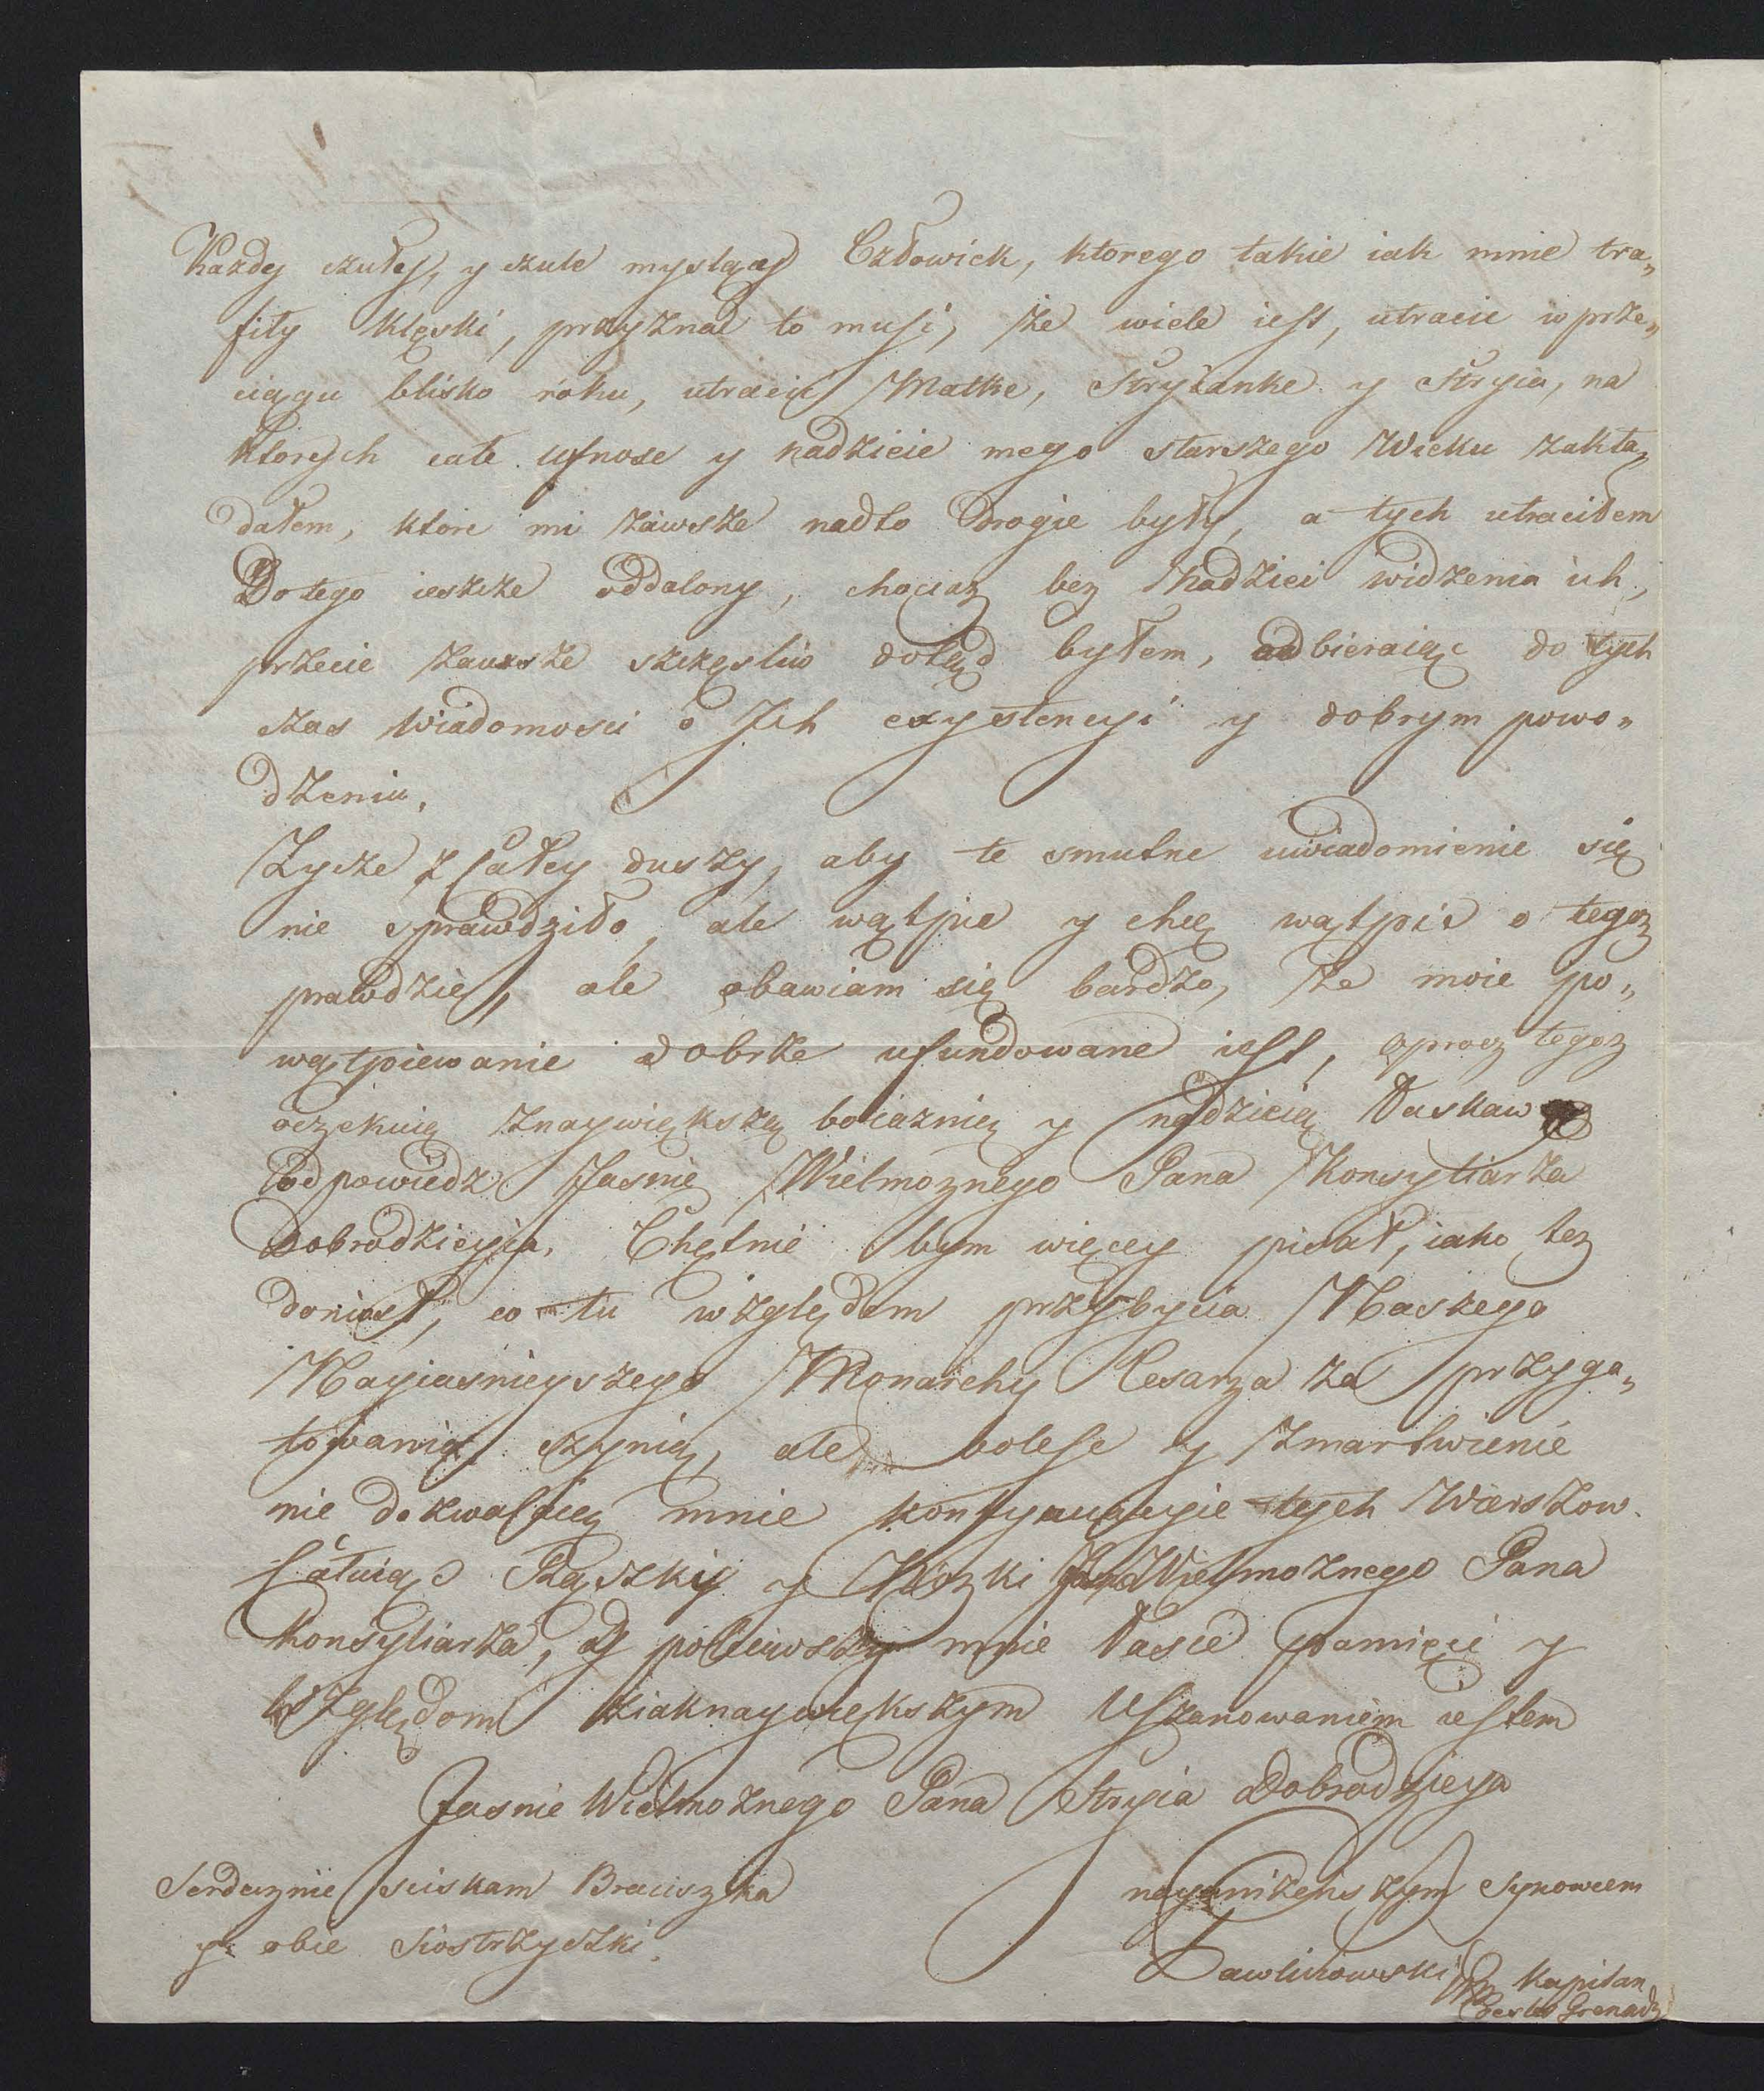 Kazdy czuły, y czule myslący Człowiek, ktorego takie iak mnie tra„
fiły klęski, przyznać to musi, że wiele iest, utracic w prze„
ciągu blisko roku, utracic Matkę, Stryiankę y Stryia, na
ktorych całe ufnosc y nadzieie mego starszego Wieku zakła„
dałem, ktore mi zawsze nadto drogie były, a tych utraciłem
Do tego ieszcze oddalony, chociaz bez Nadziei widzenia ich,
przecie zawsze szczęsliw dotąd byłem, odbieraiąc do tych
czas Wiadomosci o Ich exystencyi y dobrym powo„
dzeniu.
Zycze z Całey duszy, aby te smutne uwiadomienie się
nie sprawdziło, ale wątpie y chcę wątpić o tegoz
prawdzie, ale obawiam się bardzo, że moie po„
wątpiewanie dobrze ufundowane iest, oprocz tegoz
oczekuię znaywiększą boiaznią y nadzieią Łaskaw
odpowiedz Jasnie Wielmoznego Pana Konsyliarza
Dobrodzieyia. Chętnie bym więcey pisał, iako tez
doniosł, co tu względem przybycia Naszego
Nayiasnieyszego Monarchy Cesarza za przygo„
towania czynią, ale bolesc y Zmartwienie
nie dozwalaią mnie kontynuacyie tych Wierszow.
Całuiąc Rączki y Nozki Wielmoznego Pana
Konsyliarza, y poleciwszy mnie Łasce pamięci y
Względom ziaknaywiększym Uszanowaniem iestem
Jasnie Wielmoznego Pana Stryia Dobrodzieya
Serdecznie sciskam Braciszka
y obie Siostrzyczki.
nayunizenszym Synowcem
Pawlikowski Kapitan
Grenadz